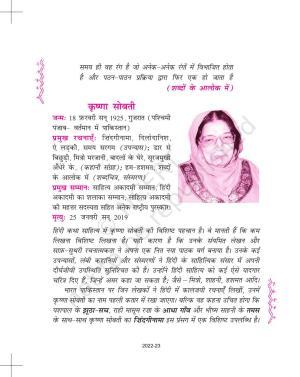 समय ही वह रंग है जो अनेक-अनेक रंगों में विभाजित होता
है और पठन-पाठन प्रक्रिया द्वारा फिर एक हो जाता है
(शब्दों के आलोक में)
कृष्णा सोबती
जन्म: 18 फ़रवरी सन् 1925, गुजरात (पश्चिमी
पंजाब- वर्तमान में पाकिस्तान)
प्रमुख रचनाएँ: ज़िंदगीनामा, दिलोदानिश,
ऐ लड़की, समय सरगम (उपन्यास); डार से
बिछुड़ी, मित्रो मरजानी, बादलों के घेरे, सूरजमुखी
अँधेरे के, (कहानी संग्रह); हम-हशमत, शब्दों
के आलोक में (शब्दचित्र, संस्मरण)
प्रमुख सम्मान: साहित्य अकादमी सम्मान, हिंदी
अकादमी का शलाका सम्मान; साहित्य अकादमी
की महत्तर सदस्यता सहित अनेक राष्ट्रीय पुरस्कार।
मृत्यु: 25 जनवरी सन् 2019
हिंदी कथा साहित्य में कृष्णा सोबती की विशिष्ट पहचान है। वे मानती हैं कि कम
लिखना विशिष्ट लिखना है। यही कारण है कि उनके संयमित लेखन और
साफ़-सुथरी रचनात्मकता ने अपना एक नित नया पाठक वर्ग बनाया है। उनके कई
उपन्यासों, लंबी कहानियों और संस्मरणों ने हिंदी के साहित्यिक संसार में अपनी
दीर्घजीवी उपस्थिति सुनिश्चित की है। उन्होंने हिंदी साहित्य को कई ऐसे यादगार
चरित्र दिए हैं, जिन्हें अमर कहा जा सकता है; जैसे–मित्रो, शाहनी, हशमत आदि।
भारत पाकिस्तान पर जिन लेखकों ने हिंदी में कालजयी रचनाएँ लिखीं, उनमें
कृष्णा सोबती का नाम पहली कतार में रखा जाएगा। बल्कि यह कहना उचित होगा कि
यशपाल के झूठा-सच, राही मासूम रज़ा के आधा गाँव और भीष्म साहनी के तमस
के साथ-साथ कृष्णा सोबती का ज़िंदगीनामा इस प्रसंग में एक विशिष्ट उपलब्धि है।
2022-23